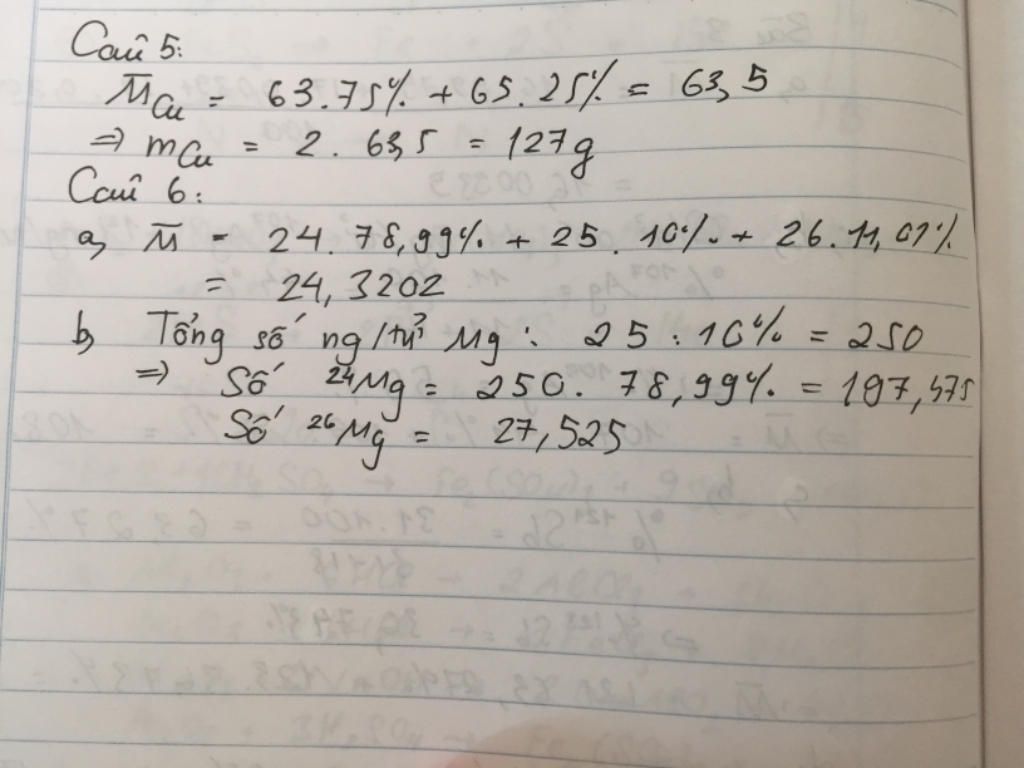 Câu 5:
M̅Cu = 63.75% + 65.25% = 63,5
=> mCu = 2. 63,5 = 127g
Câu 6:
a, M̅ = 24.78,99% + 25.10% + 26.11,01%
= 24,3202
b, Tổng số ng/tử Mg: 25:10% = 250
=> Số ²⁴Mg = 250. 78,99% = 197,475
Số ²⁶Mg = 27,525